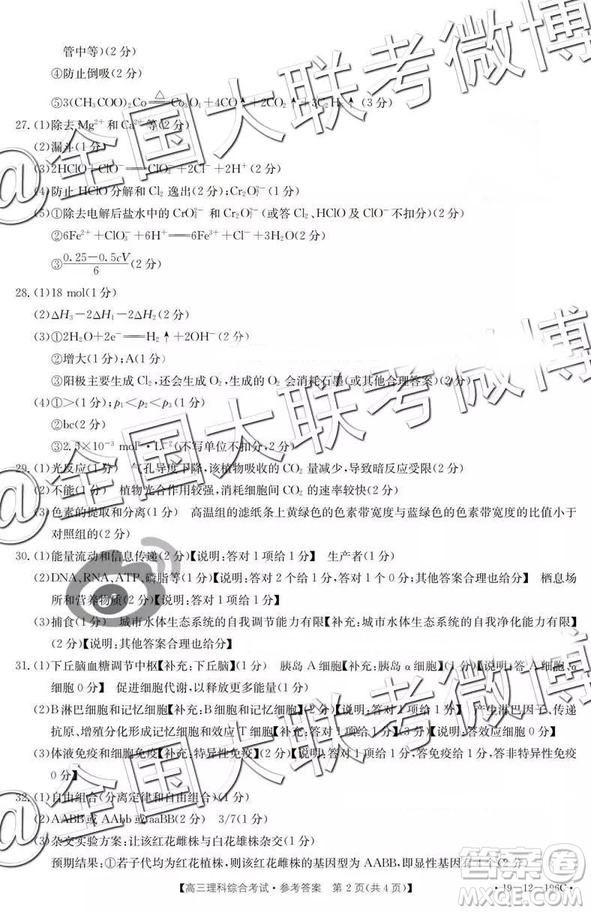 管中等)(2 分)
④防止倒吸(2 分)
⑤3(CH₃COO)₂Co══△══Co₃O₄+4CO↑+2CO₂↑+3C₂H₆↑(3 分)
27. (1)除去 Mg²⁺ 和 Ca²⁺ 等(2 分)
(2)漏斗(1 分)
(3)2HClO+ClO⁻══ClO₃⁻+2Cl⁻+2H⁺(2 分)
(4)防止 HClO 分解和 Cl₂ 逸出(2 分);Cr₂O₇²⁻(1 分)
(5)①除去电解后盐水中的 CrO₄²⁻ 和 Cr₂O₇²⁻(或答 Cl₂、HClO 及 ClO⁻ 不扣分)(2 分)
②6Fe²⁺+ClO₃⁻+6H⁺══6Fe³⁺+Cl⁻+3H₂O(2 分)
③(0.25-0.5cV)/6(2 分)
28. (1)18 mol(1 分)
(2)△H₃-2△H₁-2△H₂(2 分)
(3)①2H₂O+2e⁻══H₂↑+2OH⁻(2 分)
②增大(1 分);A(1 分)
③阳极主要生成 Cl₂,还会生成 O₂,生成的 O₂ 会消耗石墨(或其他合理答案)(2 分)
(4)①>(1 分);p₁<p₂<p₃(1 分)
②bc(2 分)
mol²·L⁻²(不写单位不扣分,2 分)
29. (1)光反应(1 分) 气孔导度下降,该植物吸收的 CO₂ 量减少,导致暗反应减弱(2 分)
(2)不能(1 分) 植物光合作用较强,消耗细胞间 CO₂ 的速率较快(2 分)
(3)色素的提取和分离(1 分) 高温组的滤纸条上黄绿色的色素带宽度与蓝绿色的色素带宽度的比值小于
对照组的(2 分)
30. (1)能量流动和信息传递(2 分)【说明:答对 1 项给 1 分】 生产者(1 分)
(2)DNA、RNA、ATP、磷脂等(2 分)【说明:答对 2 个给 1 分,答对 3 个给 2 分,其他答案合理也给分】 栖息场
所和营养物质(2 分)【说明:答对 1 项给 1 分】
(3)捕食(1 分) 城市水体生态系统的自我调节能力有限(1 分)【补充:城市水体生态系统的自我调节能力
弱(1 分),其他答案合理也给分】
31. (1)下丘脑血糖调节中枢【补充:下丘脑】(1 分) 胰岛 A 细胞【补充:胰岛 α 细胞】(1 分)【说明:答 A 细胞、α
细胞 0 分】 促进细胞代谢,以释放能量(1 分)
(2)B 淋巴细胞和记忆细胞【补充:B 细胞和记忆细胞】(2 分)【说明:答对 1 项给 1 分】 产生淋巴因子、传递
抗原、增殖分化形成记忆细胞和效应 T 细胞【说明:答对 1 项给 1 分】(3 分)【说明:答效应细胞 0 分】
(3)体液免疫和细胞免疫【补充:特异性免疫】(1 分)【说明:答体液免疫、细胞免疫 0 分、答非特异性免疫
0 分】
32. (1)自由组合(分离定律和自由组合)(1 分)
(2)AABb 或 AAbb 或aaBB(2 分) 3/7(1 分)
(3)杂交实验方案:让该红花雌株与白花雄株杂交(1 分)
预期结果:①若子代均为红花植株,则该红花雌株的基因型为 AABB,即已经发生显性突变(1 分)
【高三理科综合考试·参考答案 第 2 页(共 4 页)】
·19-12-196C·
@全国大联考微博
@全国大联考微博